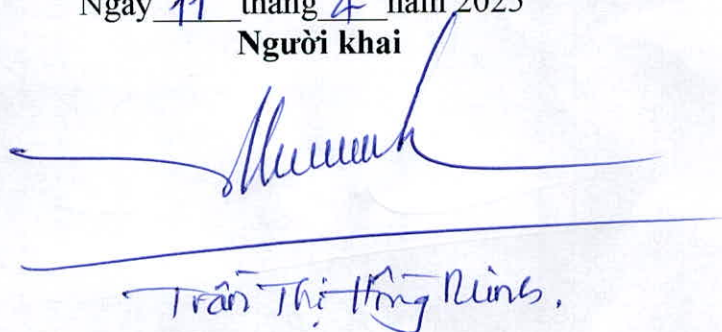 Ngày 11 tháng 4 năm 2025
Người khai
Trần Thị Hồng